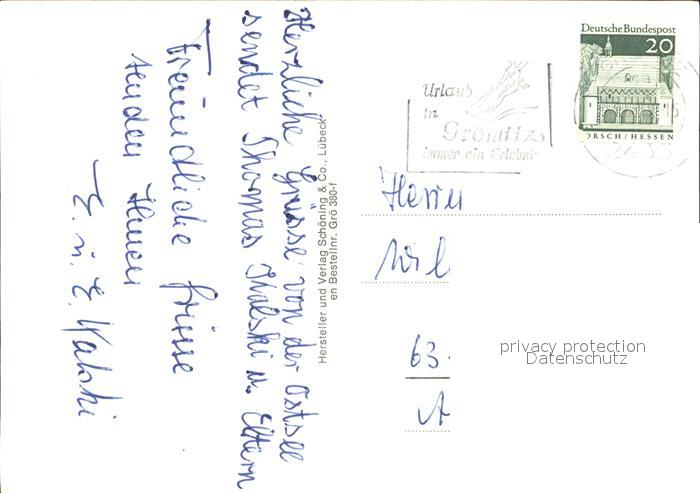 Herzliche Grüsse von der Ostsee
sendet Thomas u. Eltern
Freundliche Grüsse
senden Ihnen
E. u. E.
Hersteller und Verlag Schöning & Co., Lübeck
en Bestellnr. Grö 380-f
Urlaub
in
Grömitz
immer ein Erlebnis
Deutsche Bundespost
20
ORSCH/HESSEN
2433
Herrn
63.
A
privacy protection
Datenschutz